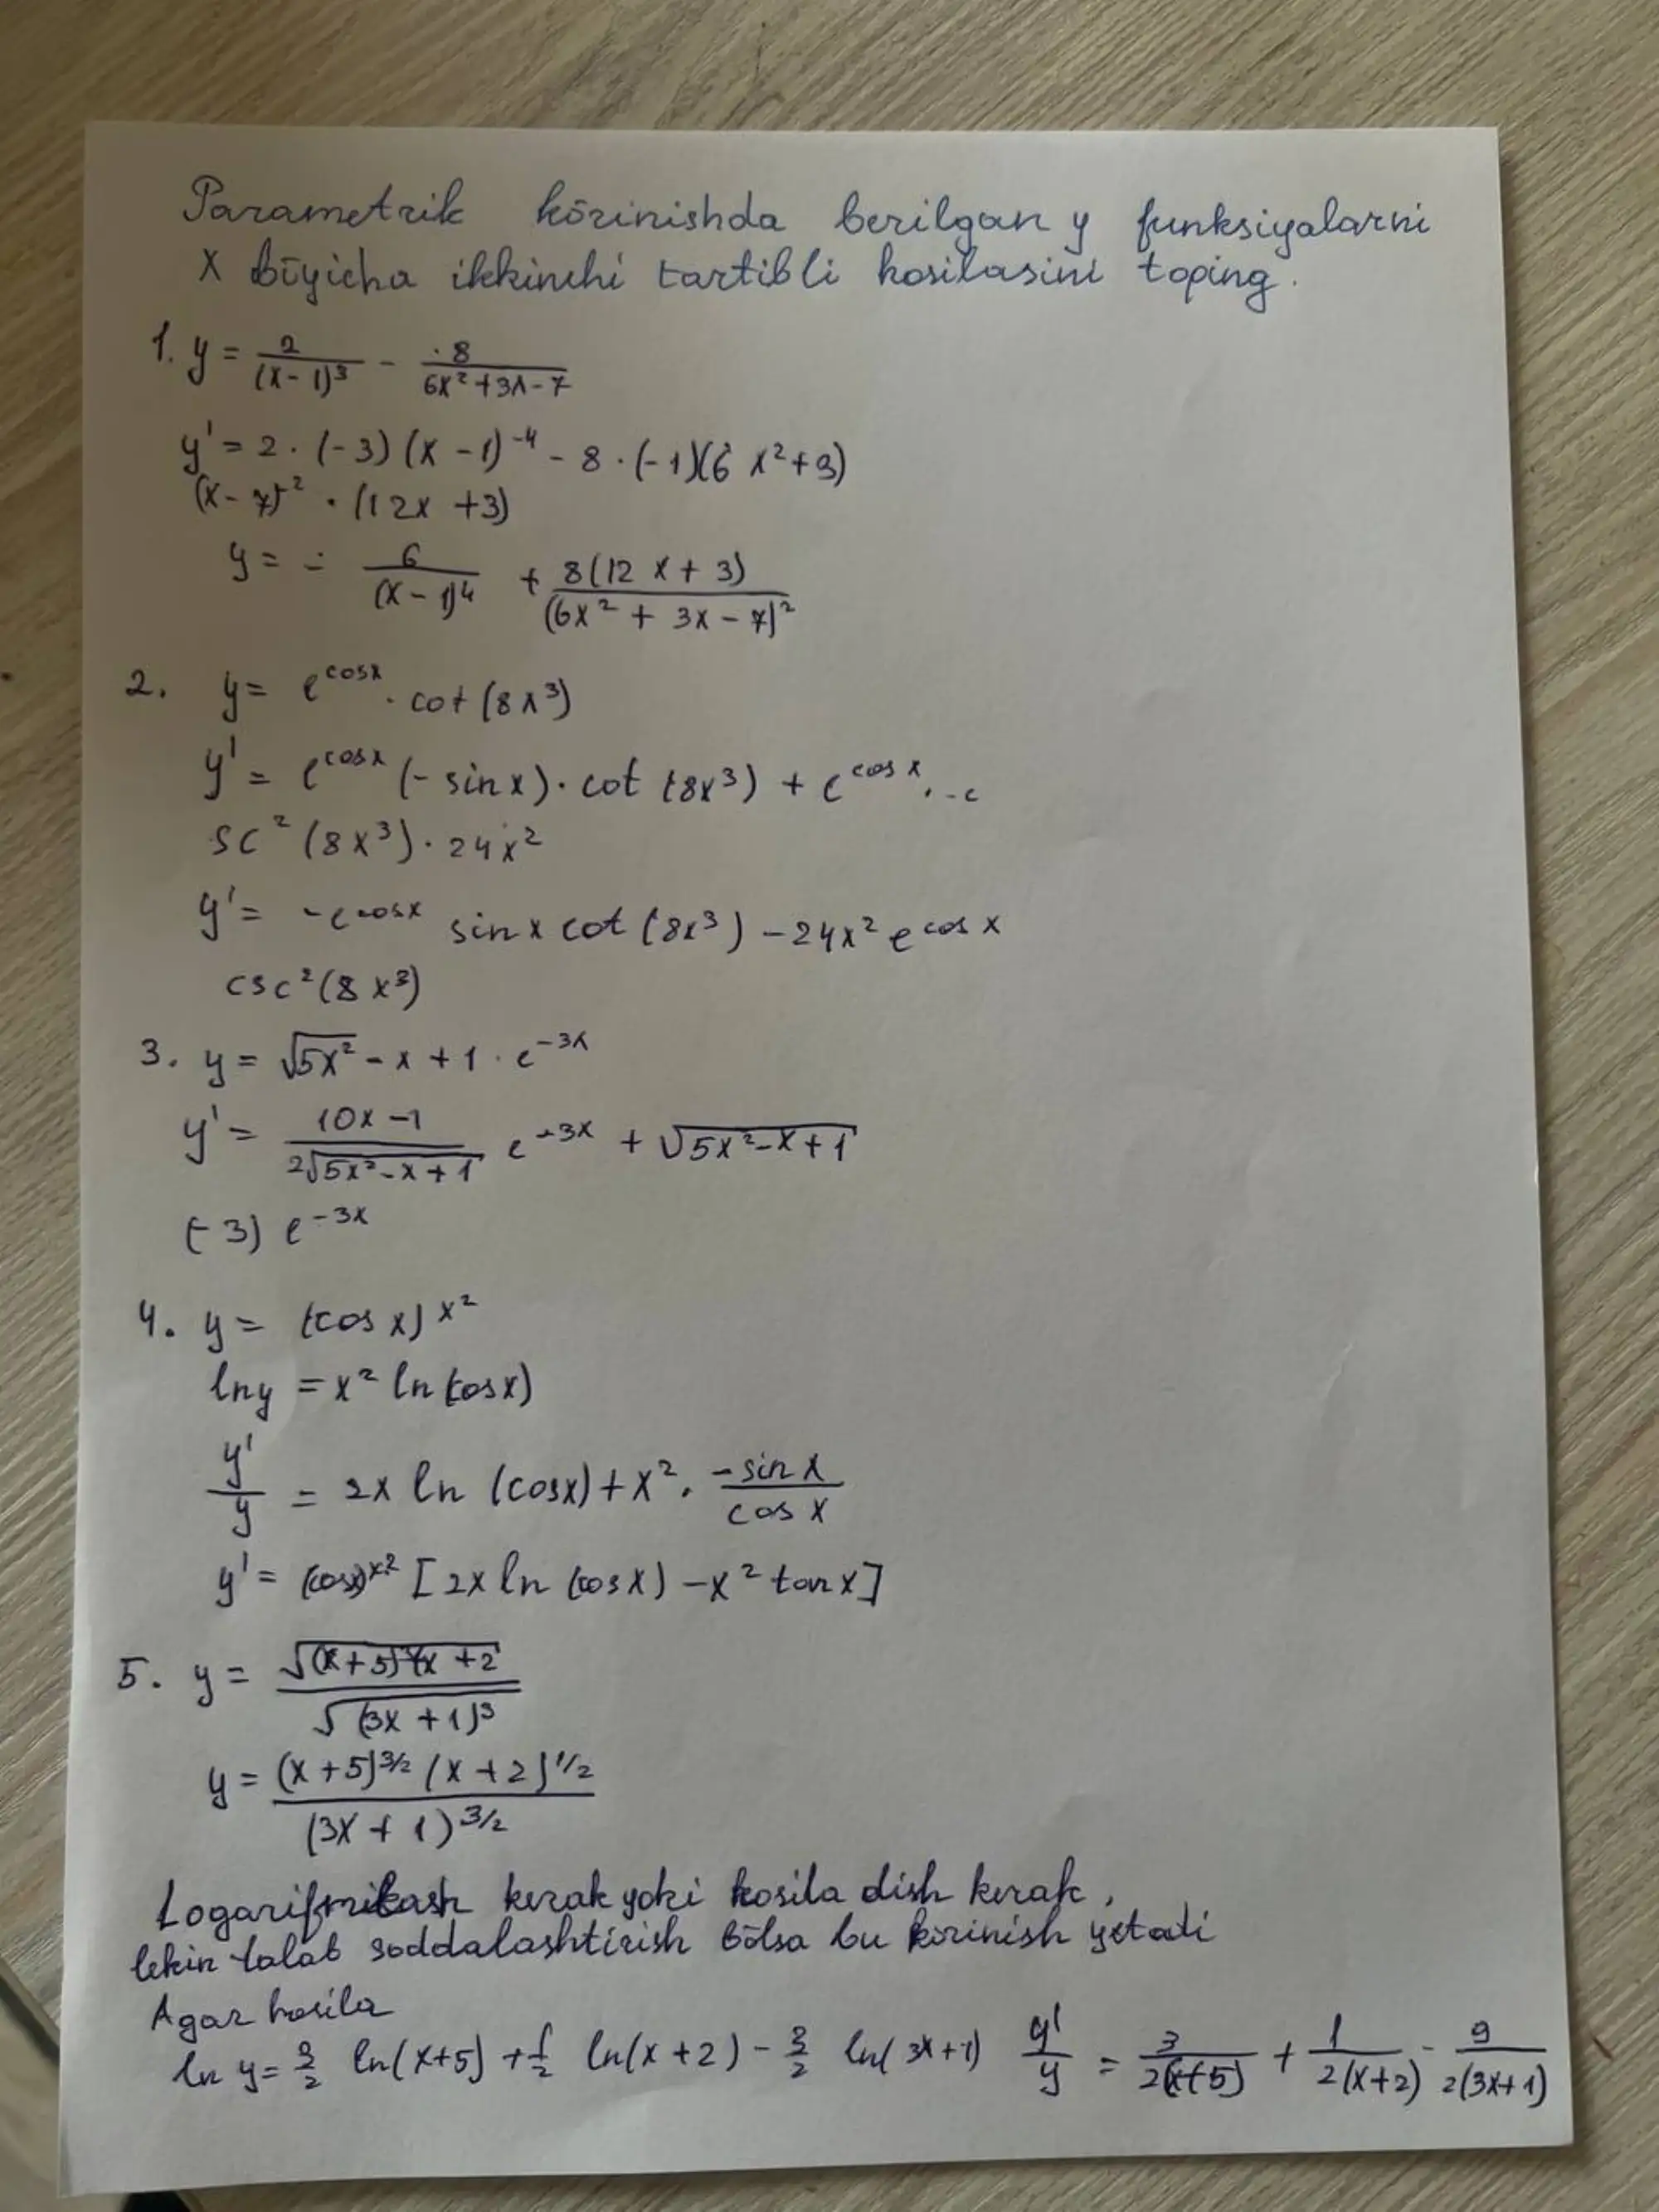 Parametrik kōrinishda berilgan y funksiyalarni
x bōyicha ikkinchi tartibli hosilasini toping.
1. y = 2/(x-1)³ - 8/(6x²+3x-7)
y' = 2 · (-3) (x - 1)⁻⁴ - 8 · (-1)(6 x²+3)
(x - 7)⁻² · (12x +3)
y = - 6/(x - 1)⁴ + 8(12 x + 3)/(6x² + 3x - 7)²
2. y = e^cosx · cot (8x³)
y' = e^cosx (- sin x) · cot (8x³) + e^cos x · -c
sc² (8x³) · 24x²
y' = -e^cosx sin x cot (8x³) - 24x² e^cos x
csc² (8 x³)
3. y = √5x² - x + 1 · e^-3x
y' = (10x -1)/(2√5x² - x + 1) e^-3x + √5x² - x + 1
(-3) e^-3x
4. y = (cos x)^x²
ln y = x² ln (cos x)
y'/y = 2x ln (cos x) + x² · -sin x/cos x
y' = (cosx)^x² [2x ln (cos x) - x² tan x]
5. y = √(x+5)³(x +2/√(3x +1)³
y = (x +5)^3/2 (x +2)^1/2/(3x + 1)^3/2
kerak yoki hosila dish kerak,
lekin talab soddalashtirish bōlsa bu kōrinish yetadi
Agar hosila
ln y = 3/2 ln (x+5) + 1/2 ln (x +2) - 3/2 ln( 3x +1) y'/y = 3/2(x+5) + 1/2(x+2) - 9/2(3x+1)